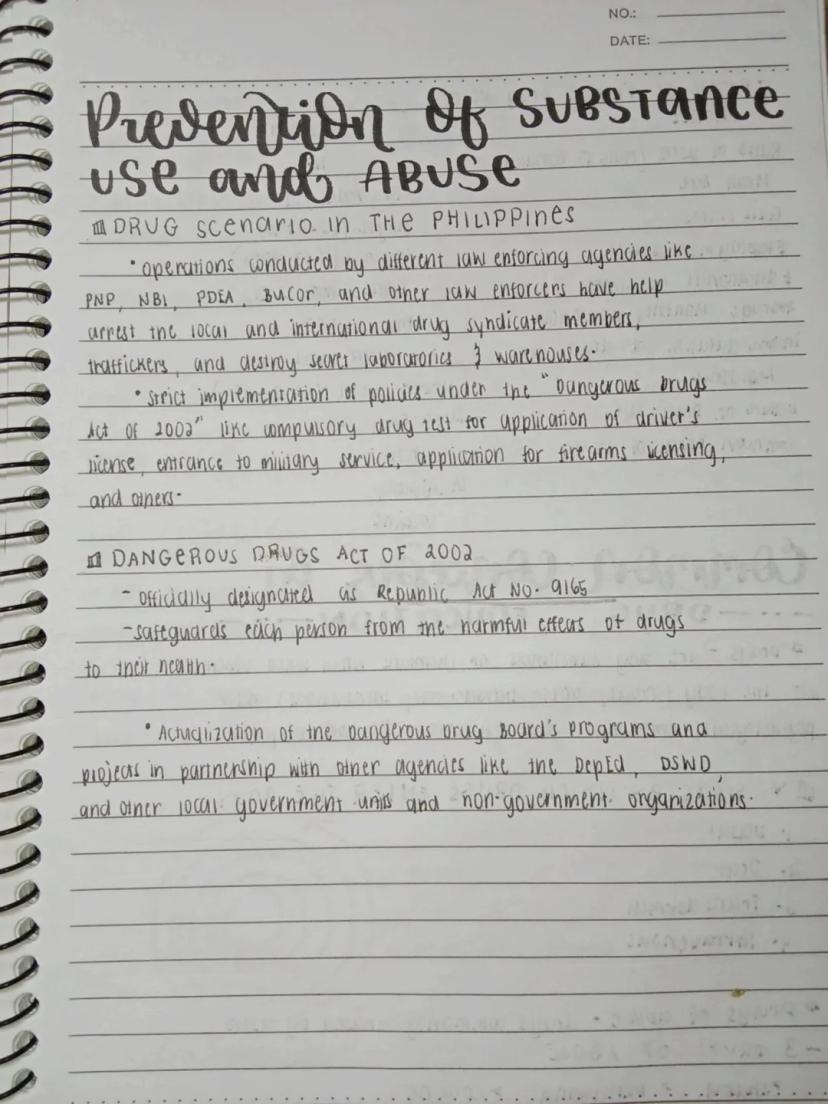 NO.:
DATE:
Prevention of SUBSTance
use and ABUSE
DRUG scenario in THE PHILIPPines
• operations conducted by different law enforcing agencies like
PNP, NBI, PDEA, BuCor, and other law enforcers have help
arrest the local and international drug syndicate members,
traffickers, and destroy secret laboratories & warehouses.
• Strict implementation of policies under the "Dangerous Drugs
Act of 2002" like compulsory drug test for application of driver's
license, entrance to military service, application for firearms licensing,
and others.
DANGEROUS DRUGS ACT OF 2002
- Officially designated as Republic Act No. 9165
- safeguards each person from the harmful effects of drugs
to their health.
• Actualization of the Dangerous Drug Board's programs and
projects in partnership with other agencies like the DepEd, DSWD,
and other local government units and non-government organizations.